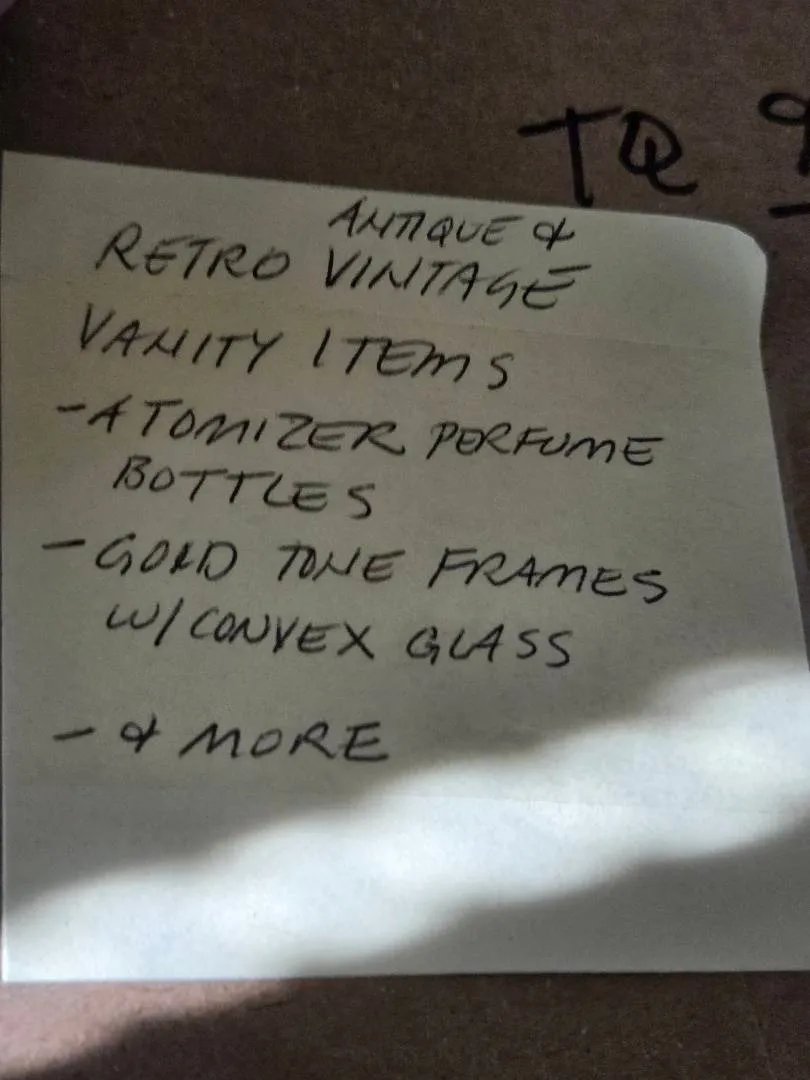 TQ 9
ANTIQUE &
RETRO VINTAGE
VANITY ITEMS
-ATOMIZER PERFUME
BOTTLES
- GOLD TONE FRAMES
W/ CONVEX GLASS
- & MORE